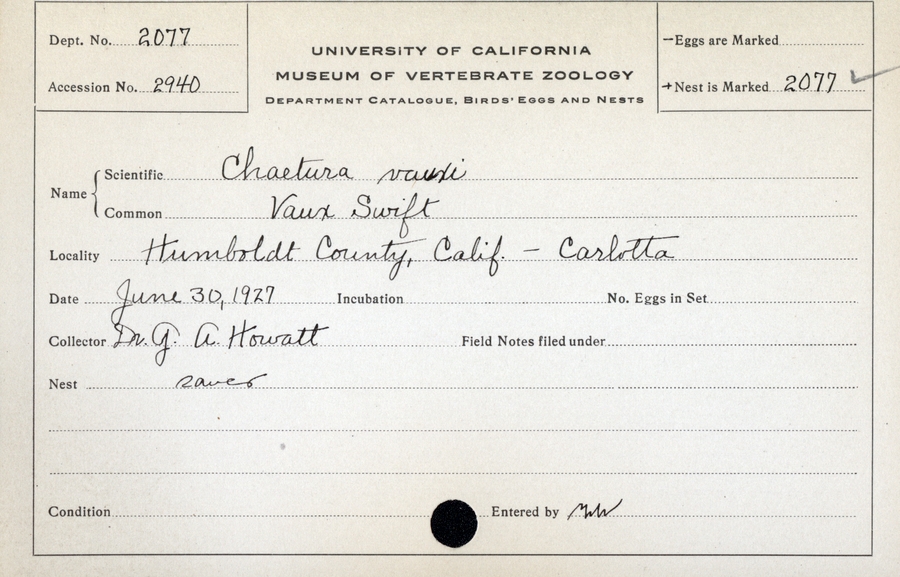 Dept. No. 2077
Accession No. 2940
UNIVERSITY OF CALIFORNIA
MUSEUM OF VERTEBRATE ZOOLOGY
DEPARTMENT CATALOGUE, BIRDS' EGGS AND NESTS
—Eggs are Marked
+Nest is Marked 2077 ✓
Name { Scientific Chaetura vauxi
Common Vaux Swift
Locality Humboldt County, Calif. – Carlotta
Date June 30, 1927 Incubation No. Eggs in Set
Collector Dr. G. A. Howatt Field Notes filed under
Nest saved
Condition Entered by